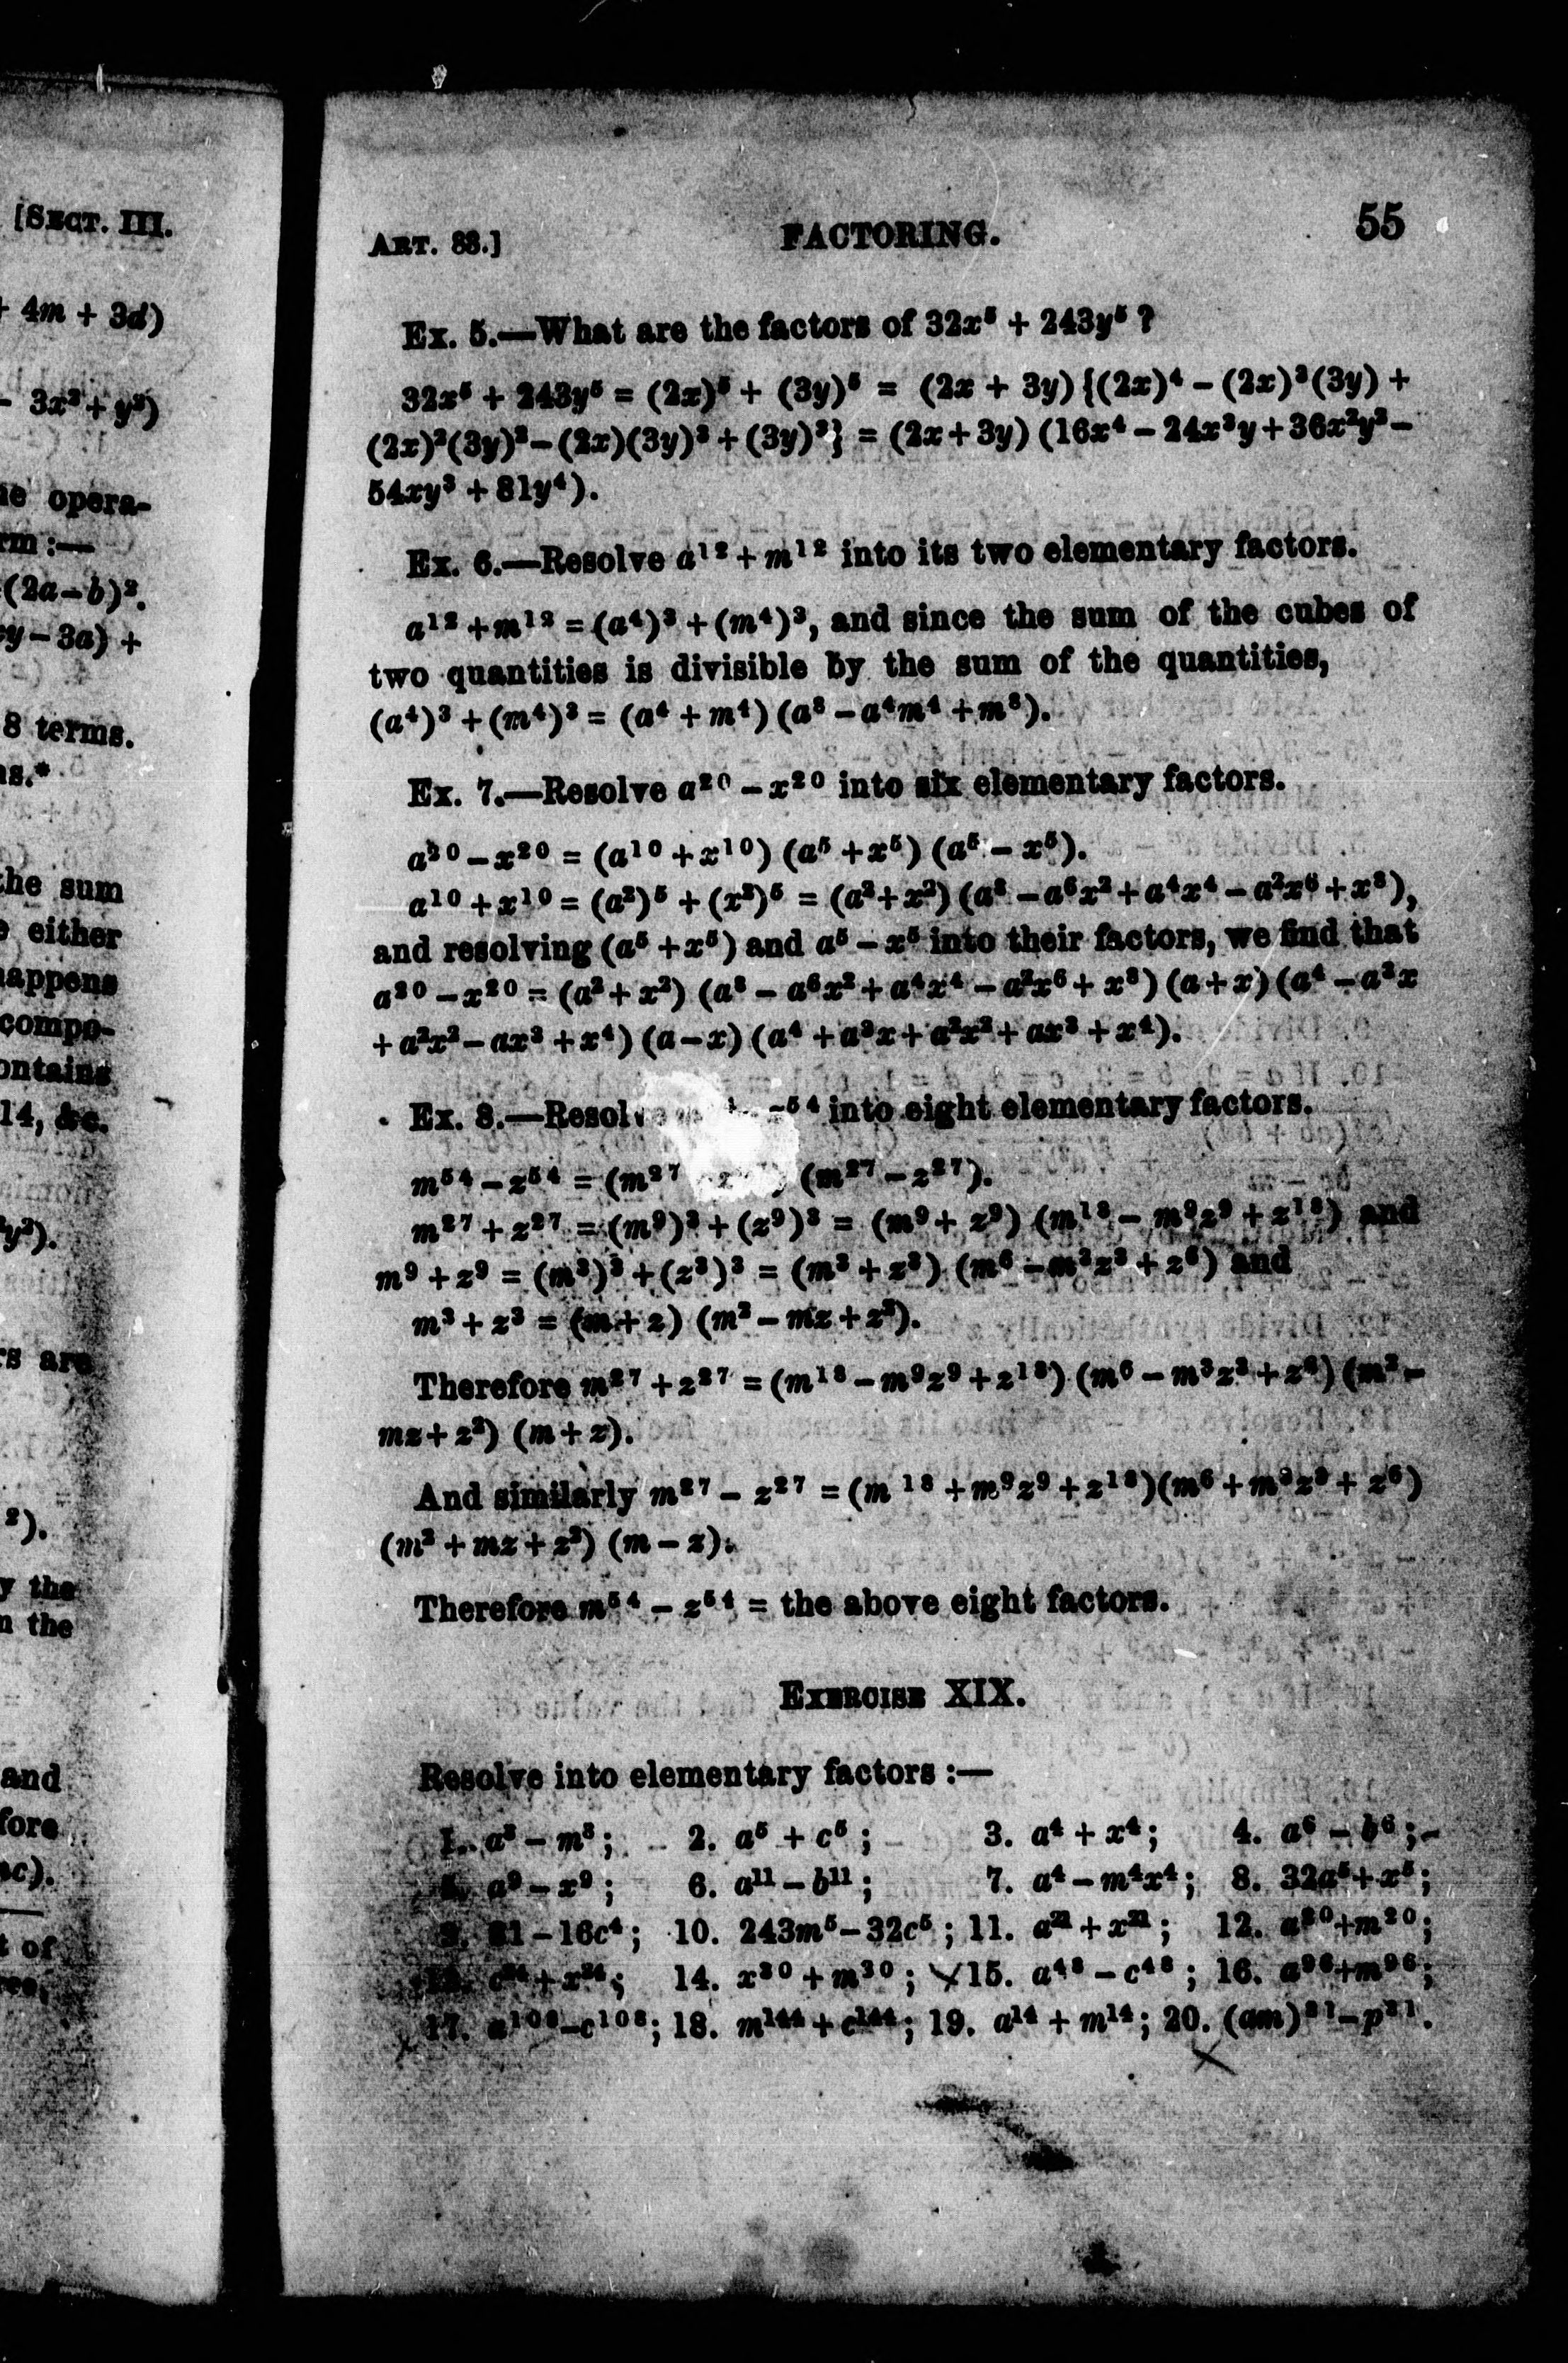 [SECT. III.
+ 4m + 3d)
- 3x² + y²)
opera-
:—
(2a–b)².
y – 3a) +
8 terms.
the sum
either
happens
compo-
contains
14, &c.
y²).
are
²).
the
the
and
of
ART. 88.] FACTORING. 55
Ex. 5.—What are the factors of 32x⁵ + 243y⁵ ?
32x⁵ + 243y⁵ = (2x)⁵ + (3y)⁵ = (2x + 3y) {(2x)⁴ – (2x)³(3y) +
(2x)²(3y)² – (2x)(3y)³ + (3y)³} = (2x + 3y) (16x⁴ – 24x³y + 36x²y² –
54xy³ + 81y⁴).
Ex. 6.—Resolve a¹² + m¹² into its two elementary factors.
a¹² + m¹² = (a⁴)³ + (m⁴)³, and since the sum of the cubes of
two quantities is divisible by the sum of the quantities,
(a⁴)³ + (m⁴)³ = (a⁴ + m⁴) (a⁸ – a⁴m⁴ + m⁸).
Ex. 7.—Resolve a²⁰ – x²⁰ into six elementary factors.
a²⁰ – x²⁰ = (a¹⁰ + x¹⁰) (a⁵ + x⁵) (a⁵ – x⁵).
a¹⁰ + x¹⁰ = (a²)⁵ + (x²)⁵ = (a² + x²) (a⁸ – a⁶x² + a⁴x⁴ – a²x⁶ + x⁸),
and resolving (a⁵ + x⁵) and a⁵ – x⁵ into their factors, we find that
a²⁰ – x²⁰ = (a² + x²) (a⁸ – a⁶x² + a⁴x⁴ – a²x⁶ + x⁸) (a + x) (a⁴ – a³x
+ a²x² – ax³ + x⁴) (a – x) (a⁴ + a³x + a²x² + ax³ + x⁴).
Ex. 8.—Resolve ⁵⁴ into eight elementary factors.
m⁵⁴ – z⁵⁴ = (m²⁷ ) (m²⁷ – z²⁷).
m²⁷ + z²⁷ = (m⁹)³ + (z⁹)³ = (m⁹ + z⁹) (m¹⁸ – m⁹z⁹ + z¹⁸) and
m⁹ + z⁹ = (m³)³ + (z³)³ = (m³ + z³) (m⁶ – m³z³ + z⁶) and
m³ + z³ = (m + z) (m² – mz + z²).
Therefore m²⁷ + z²⁷ = (m¹⁸ – m⁹z⁹ + z¹⁸) (m⁶ – m³z³ + z⁶) (m² –
mz + z²) (m + z).
And similarly m²⁷ – z²⁷ = (m¹⁸ + m⁹z⁹ + z¹⁸)(m⁶ + m³z³ + z⁶)
(m² + mz + z²) (m – z).
Therefore m⁵⁴ – z⁵⁴ = the above eight factors.
EXERCISE XIX.
Resolve into elementary factors :—
1. a³ – m³ ; 2. a⁵ + c⁵ ; 3. a⁴ + x⁴ ; 4. a⁶ – b⁶ ;
5. a⁹ – x⁹ ; 6. a¹¹ – b¹¹ ; 7. a⁴ – m⁴x⁴ ; 8. 32a⁵ + x⁵ ;
9. 81 – 16c⁴ ; 10. 243m⁵ – 32c⁵ ; 11. a²¹ + x²¹ ; 12. a²⁰ + m²⁰ ;
13. c²⁴ + x²⁴ ; 14. x³⁰ + m³⁰ ; 15. a⁴⁸ – c⁴⁸ ; 16. a⁹⁶ + m⁹⁶ ;
17. a¹⁰⁸ – c¹⁰⁸ ; 18. m¹⁴⁴ + c¹⁴⁴ ; 19. a¹⁴ + m¹⁴ ; 20. (am)⁸¹ – p⁸¹.